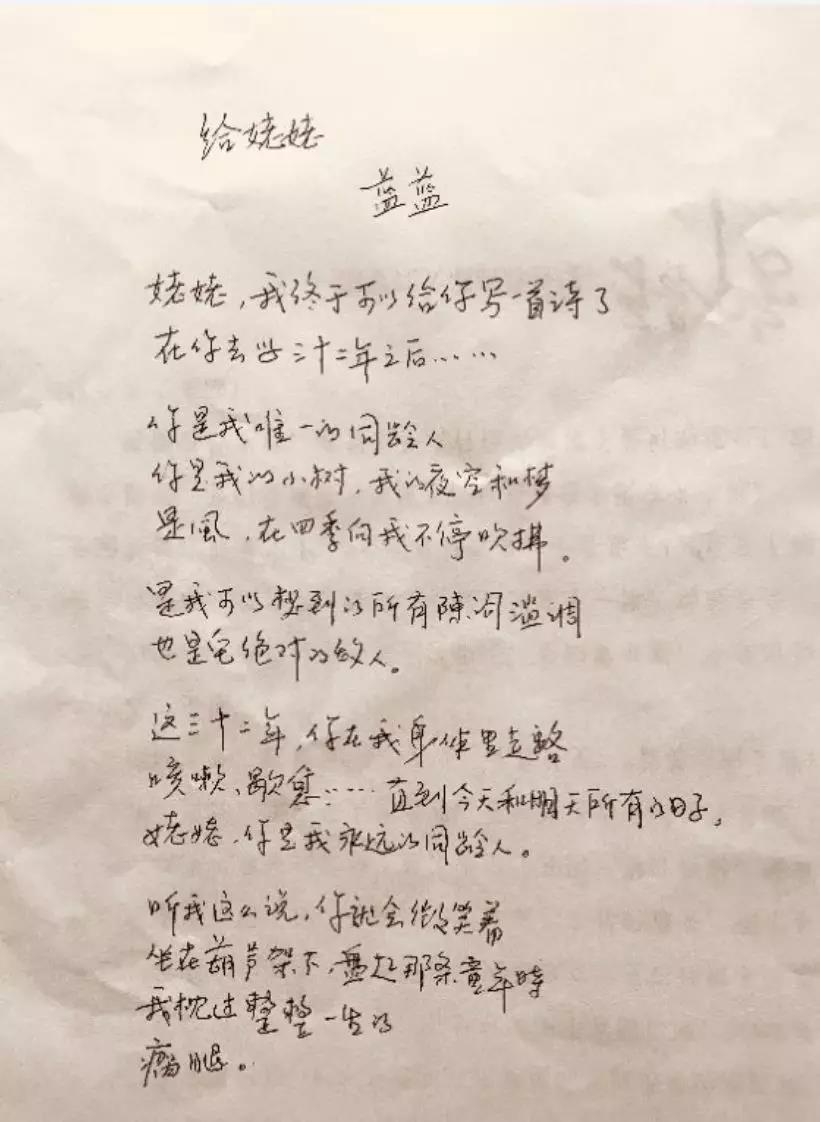 给姥姥
蓝蓝
姥姥，我终于可以给你写一首诗了
在你去世三十二年之后……
你是我唯一的同龄人
你是我的小树，我的夜空和梦
是風，在四季向我不停吹拂。
是我可以想到的所有陳词滥调
也是它绝对的敌人。
这三十二年，你在我身体里走路
咳嗽、歇息……直到今天和明天所有的日子，
姥姥，你是我永远的同龄人。
听我这么说，你就会微笑着
坐在葫芦架下，盘起那条童年時
我枕过整整一生的
瘸腿。